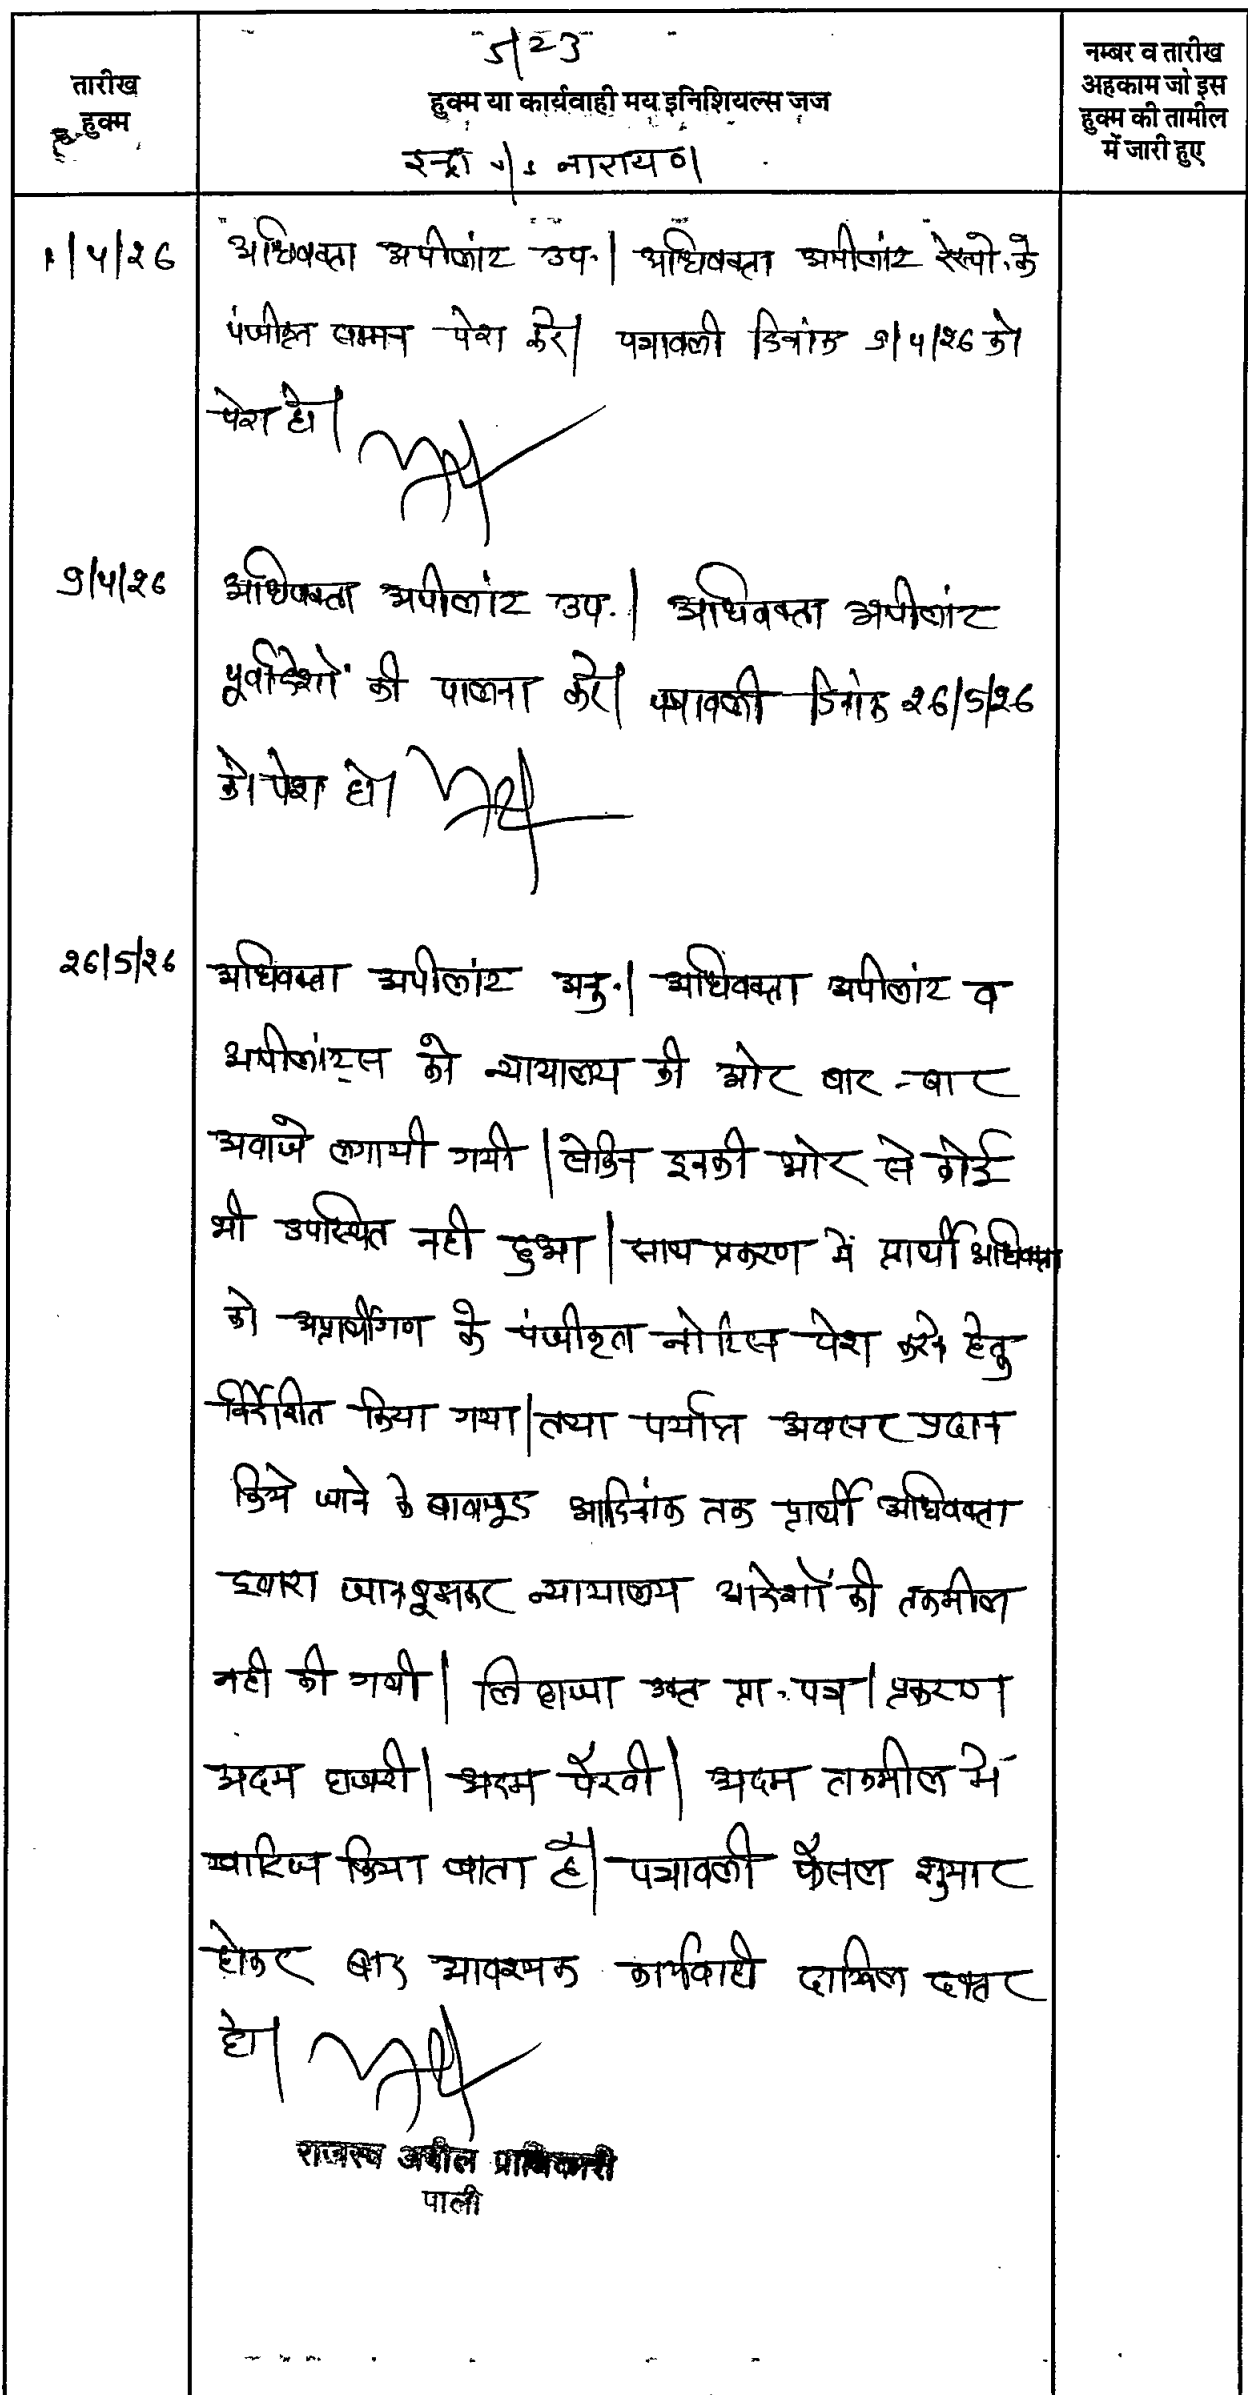 5/23
तारीख
हुक्म
हुक्म या कार्यवाही मय इनिशियल्स जज
नम्बर व तारीख
अहकाम जो इस
हुक्म की तामील
में जारी हुए
इन्द्रा नारायण
1/4/26
अधिवक्ता अपीलांट उप.। अधिवक्ता अपीलांट रेस्पो. के
पंजीकृत सम्मन पेश करे। पत्रावली दिनांक 9/4/26 को
पेश हो।
9/4/26
अधिवक्ता अपीलांट उप.। अधिवक्ता अपीलांट
पूर्वादेशों की पालना करे। पत्रावली दिनांक 26/5/26
को पेश हो।
26/5/26
अधिवक्ता अपीलांट अनु.। अधिवक्ता अपीलांट व
अपीलांट्स को न्यायालय की ओर बार-बार
अवाजे लगायी गयी। लेकिन इनकी ओर से कोई
भी उपस्थित नही हुआ। साथ प्रकरण में प्रार्थी अधिवक्ता
को अप्रार्थीगण के पंजीकृत नोटिस पेश करने हेतु
निर्देशित किया गया। तथा पर्याप्त अवसर प्रदान
किये जाने के बावजूद आदिनांक तक प्रार्थी अधिवक्ता
द्वारा जानबूझकर न्यायालय आदेशों की तकमील
नही की गयी। लिहाजा उक्त प्रा. पत्र/प्रकरण
अदम हाजरी/अदम पैरवी/अदम तकमील में
खारिज किया जाता है। पत्रावली फैसल शुमार
होकर बाद आवश्यक कार्यवाही दाखिल दफ्तर
हो।
राजस्व अपील प्राधिकारी
पाली